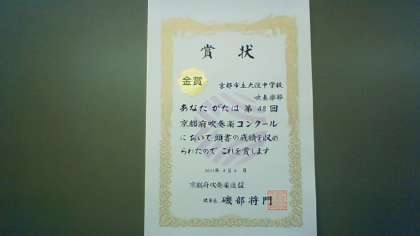 賞状
金賞
京都市立大淀中学校
吹奏楽部
あなたがたは第48回
京都府吹奏楽コンクール
において頭書の成績を収め
られたのでこれを賞します
京都府吹奏楽連盟
理事長 磯部将門